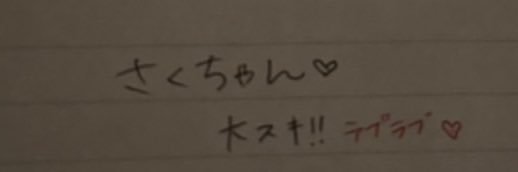 さくちゃん♡
大スキ!! ラブラブ♡